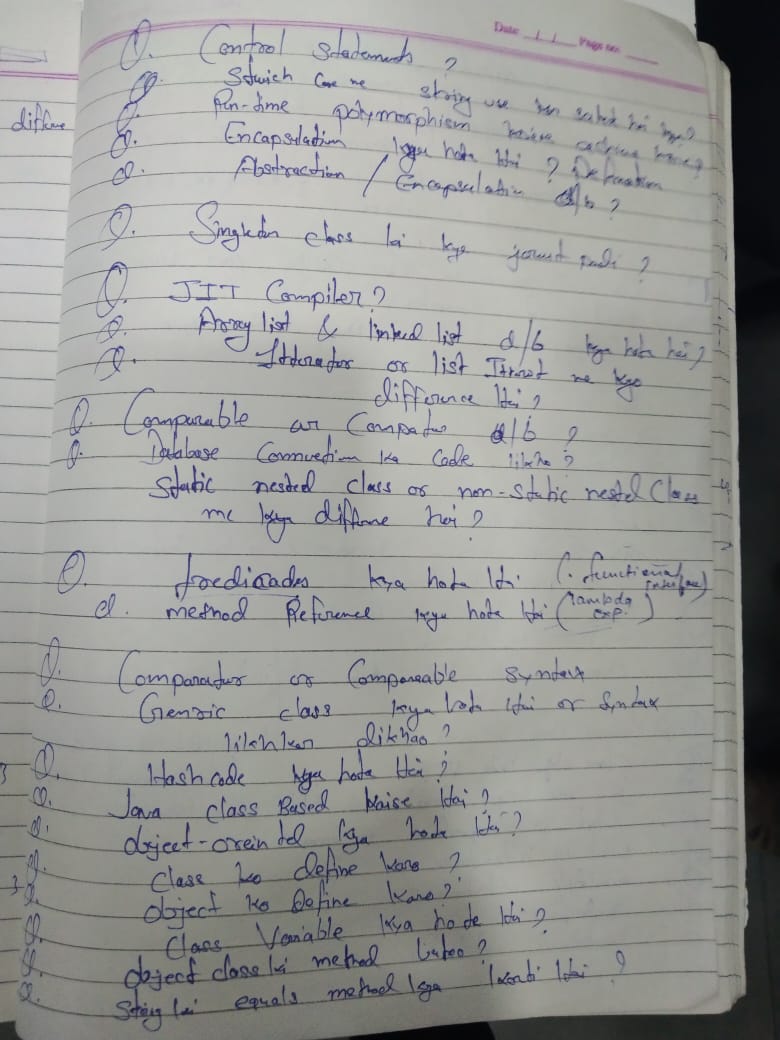 Date / / Page no.
Q. Control Statements ?
Q. Stwich Case me string use kar sakte hai kya?
Q. Run-time polymorphism kaise achive kare?
Q. Encapsulation kya hota Hai ? Defination
Q. Abstraction / Encapsulation d/b ?
Q. Singleton class ki kya jarurat padi ?
Q. JIT Compiler ?
Q. Array list & linked list d/b kya hota hai ?
Q. Itterator or list Iterat me kya
difference Hai ?
Q. Comparable or Compator d/b ?
Q. Database Connvection ka Code likho ?
Static nested class or non-static nested Class
me kya diffrne hai ?
Q. Predicades kya hota Hai (functional interface)
Q. method Refirence kya hota Hai (lambda exp.)
Q. Comparator or Compareable syntax
Q. Genric class kya hota Hai or Syntax
likhkar dikhao ?
Q. Hashcode kya hota Hai ?
Q. Java class Based kaise Hai ?
Q. object-oreinted kya hota Hai ?
Q. Class ko define karo ?
Q. object ko Define karo ?
Q. Class Veriable kya hote Hai ?
Q. object class ki method batao ?
Q. String ki equals method kya karti Hai ?